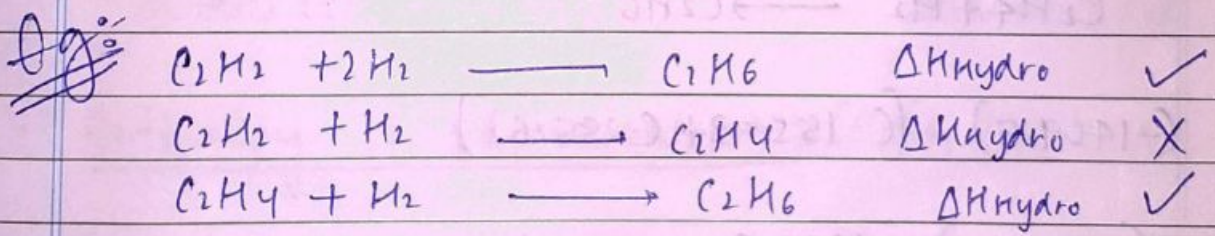 eg:
C2H2 + 2H2 —— C2H6 ΔHHydro ✓
C2H2 + H2 ⟶ C2H4 ΔHHydro X
C2H4 + H2 ⟶ C2H6 ΔHHydro ✓